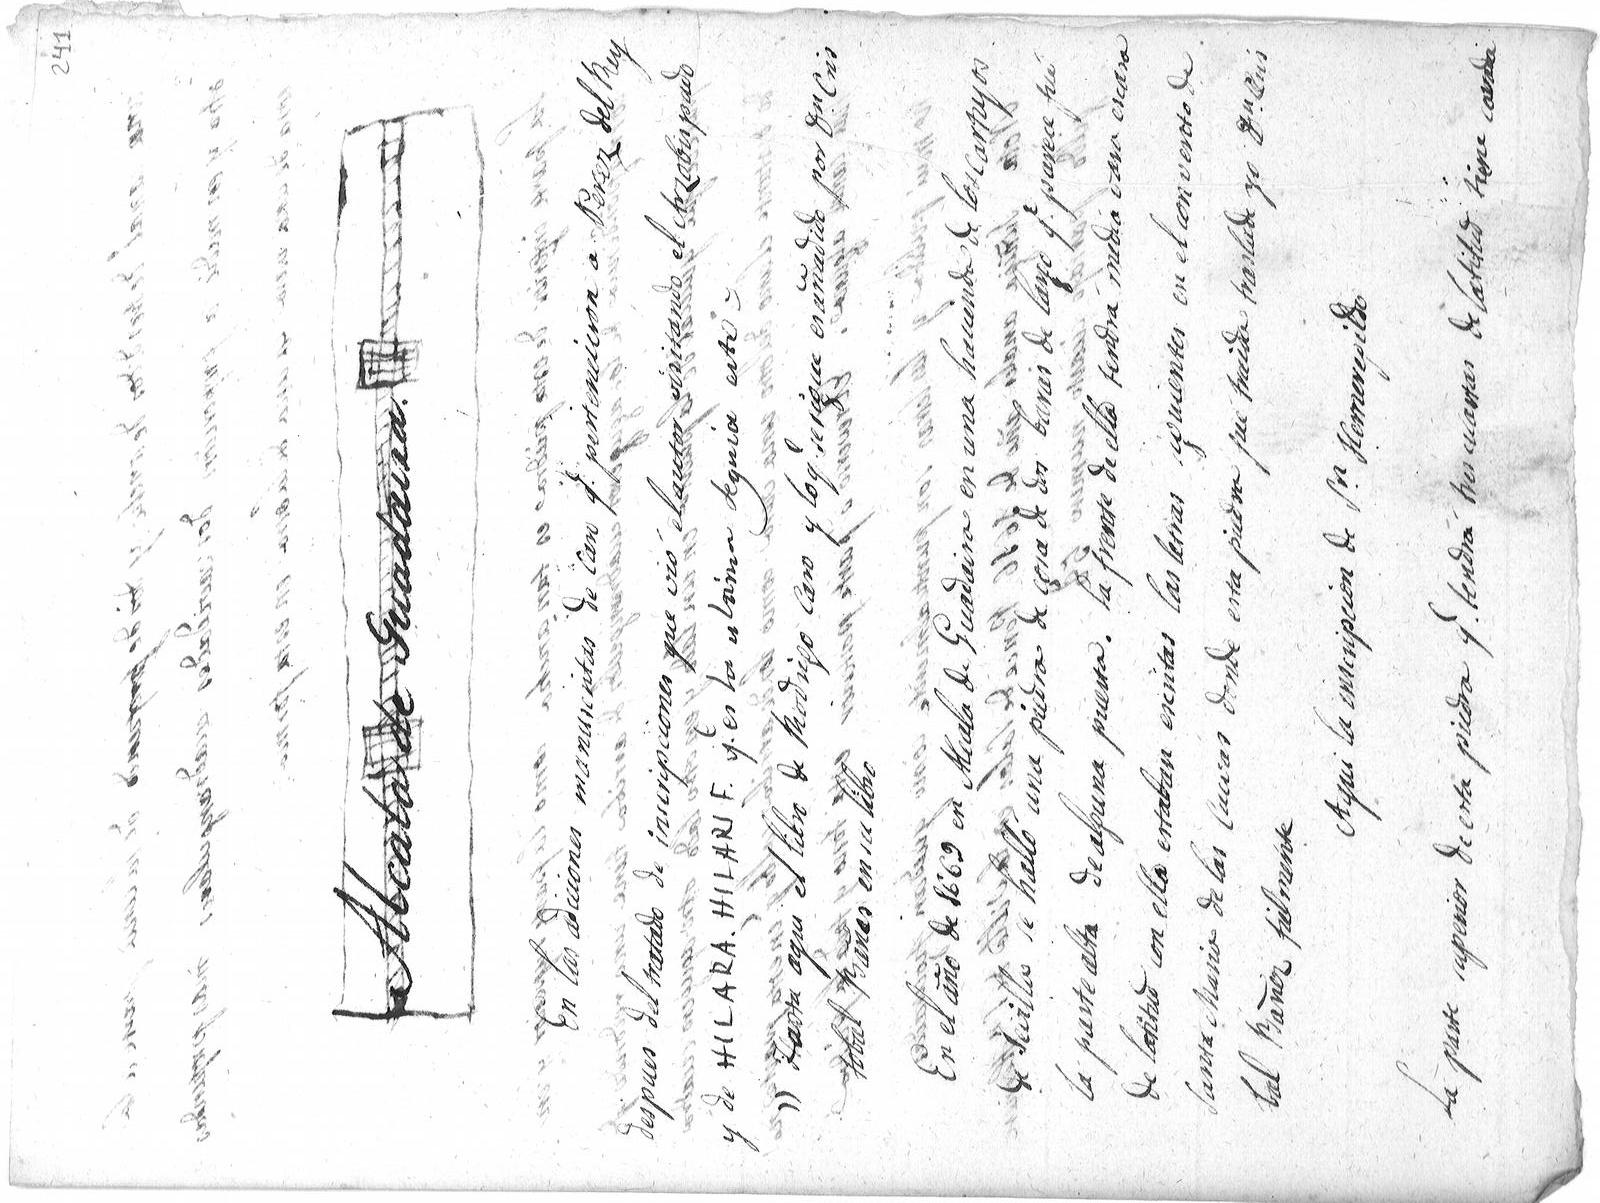 241
Alcalá de Guadaira.
En las adiciones manuscritas de Caro q.e pertenecieron a Perez del Rey
despues del tratado de inscripciones que vió el autor visitando el Arzobispado
y de HILARA. HILARI F. q.e es la ultima seguia esto
)) Hasta aqui el libro de Rodrigo Caro y lo q.e se sigue es añadido por Dn. Cris
tobal Bañes en su libro
En el año de 1669 en Alcala de Guadaira en una hacienda de los
de Sevilla se halló una piedra de cosa de dos baras de largo q.e parece fué
la parte alta de alguna puerta. la frente de ella tendrá media vara escasa
de latitud con ella estaban escritas las letras siguientes en el convento de
Santa Maria de las Cuevas donde esta piedra fue traida traslade yo Dn. Cris
tal Bañez fielmente
Aqui la inscripcion de Sn. Hermenegildo
La parte superior de esta piedra q.e tendrá tres cuartas de latitud tiene